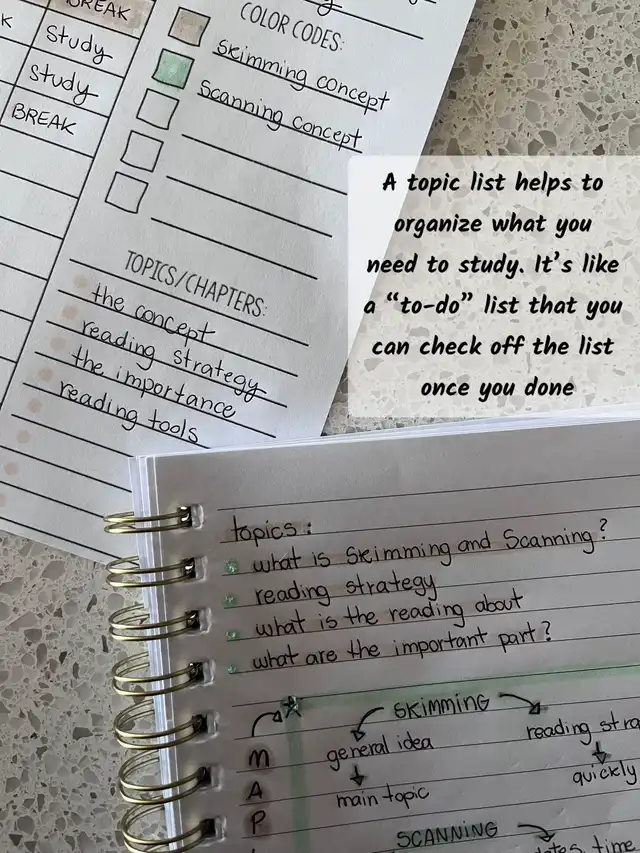 BREAK
K Study
Study
BREAK
COLOR CODES:
Skimming concept
Scanning concept
TOPICS/CHAPTERS:
the concept
reading strategy
the importance
reading tools
A topic list helps to
organize what you
need to study. It's like
a "to-do" list that you
can check off the list
once you done
topics:
what is Skimming and Scanning?
reading strategy
what is the reading about
what are the important part?
SKIMMING
M general idea reading stra
A main topic quickly
P
SCANNING
dates, time